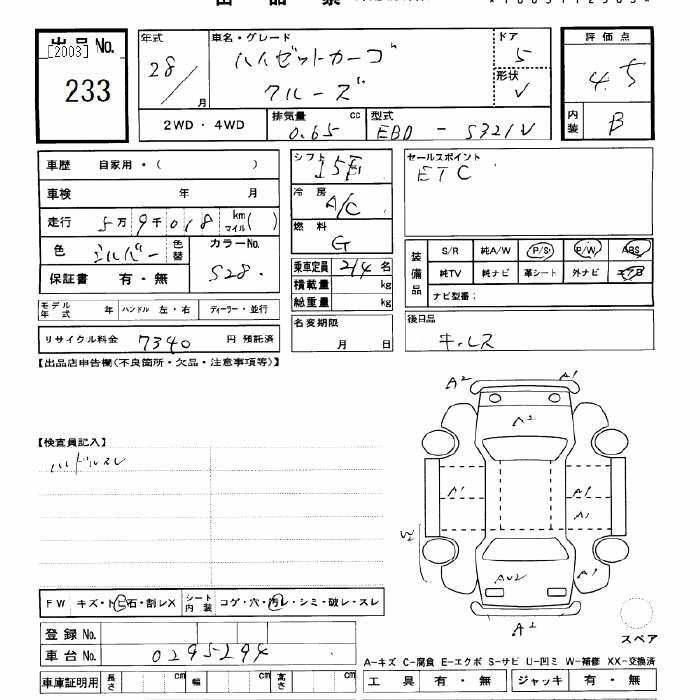 出品No.
[2003]
233
年式
28/ 月
車名・グレード
ハイゼットカーゴ
クルーズ
ドア
5
形状
V
評価点
4.5
内装
B
2WD・4WD
排気量 cc
0.65
型式
EBD-S321V
車歴 自家用・( )
車検 年 月
走行 5万9千018 km マイル( )
色 シルバー 色替
カラーNo.
S28.
保証書 有・無
モデル年式 年 ハンドル 左・右 ディーラー・並行
リサイクル料金 7340 円 預託済
シフト
I5F
冷房
A/C
燃料
G
乗車定員 2/4 名
積載量 kg
総重量 kg
名変期限
月 日
セールスポイント
ETC
装備品
S/R 純A/W P/S P/W ABS
純TV 純ナビ 革シート 外ナビ エアB
ナビ型番:
後日品
キーレス
【出品店申告欄(不良箇所・欠品・注意事項等)】
【検査員記入】
ハンドルスレ
A2 A1
A2
A1 A1
A1
W2
AU2 A1
A2
スペア
FW キズ・トビ石・割レX
シート内装 コゲ・穴・汚レ・シミ・破レ・スレ
登録No.
車台No. 0295294
車庫証明用 長さ cm 幅 cm 高さ cm
A-キズ C-腐食 E-エクボ S-サビ U-凹ミ W-補修 XX-交換済
工具 有・無 ジャッキ 有・無